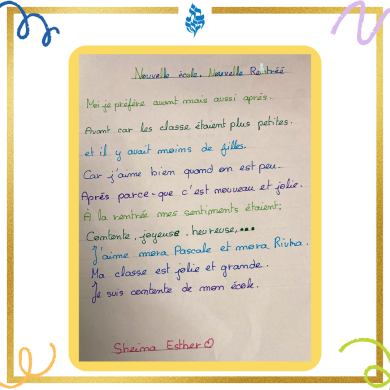 Nouvelle école, Nouvelle Rentrée
Moi je préfère avant mais aussi après.
Avant car les classe étaient plus petites.
et il y avait moins de filles.
Car j'aime bien quand on est peu.
Après parce-que c'est nouveau et jolie.
À la rentrée mes sentiments étaient:
Contente, joyeuse, heureuse,...
J'aime mora Pascale et mora Rivka.
Ma classe est jolie et grande.
Je suis contente de mon école.
Sheina Esther